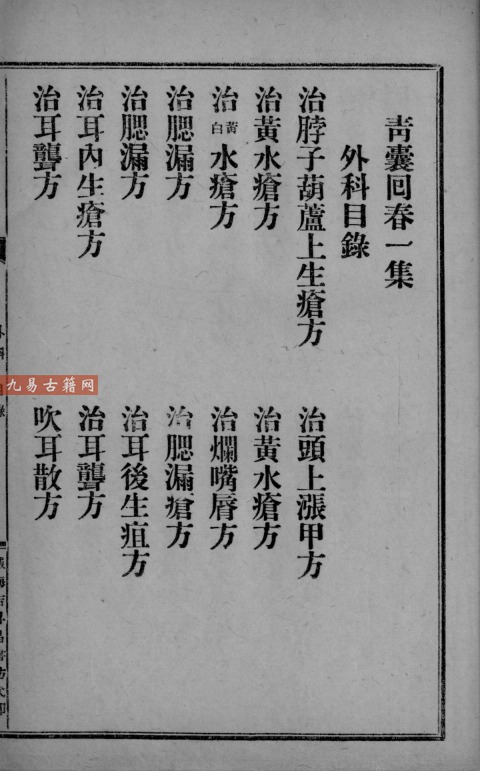 靑囊回春一集
外科目錄
治脖子葫蘆上生瘡方
治頭上漲甲方
治黃水瘡方
治黃水瘡方
治黃白水瘡方
治爛嘴唇方
治腮漏方
治腮漏瘡方
治腮漏方
治耳後生疽方
治耳內生瘡方
治耳聾方
治耳聾方
吹耳散方
九易古籍网